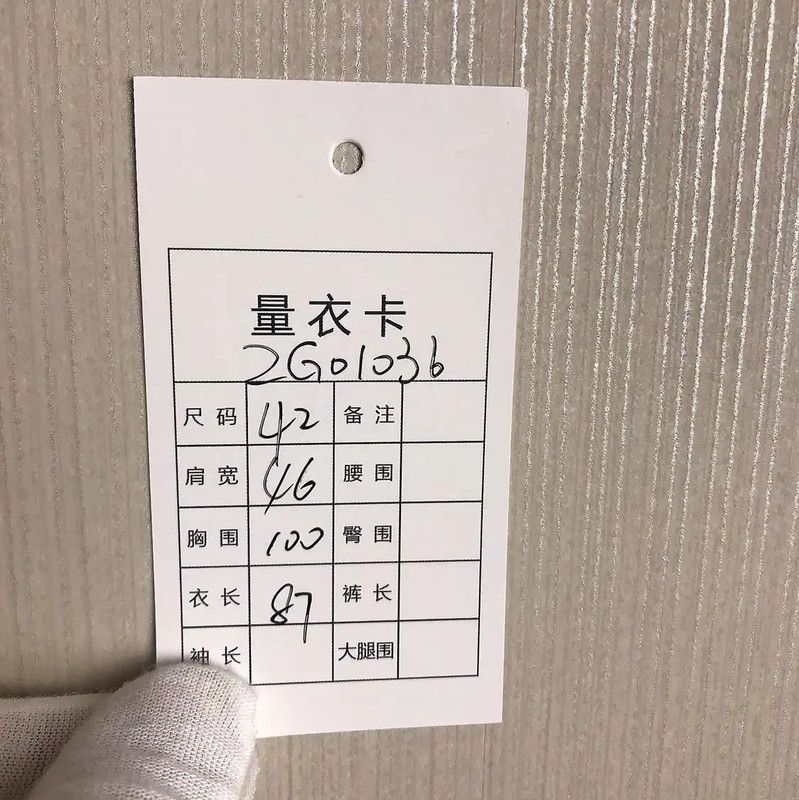 量衣卡
2G01036
尺码 42 备注
肩宽 46 腰围
胸围 100 臀围
衣长 87 裤长
袖长 大腿围